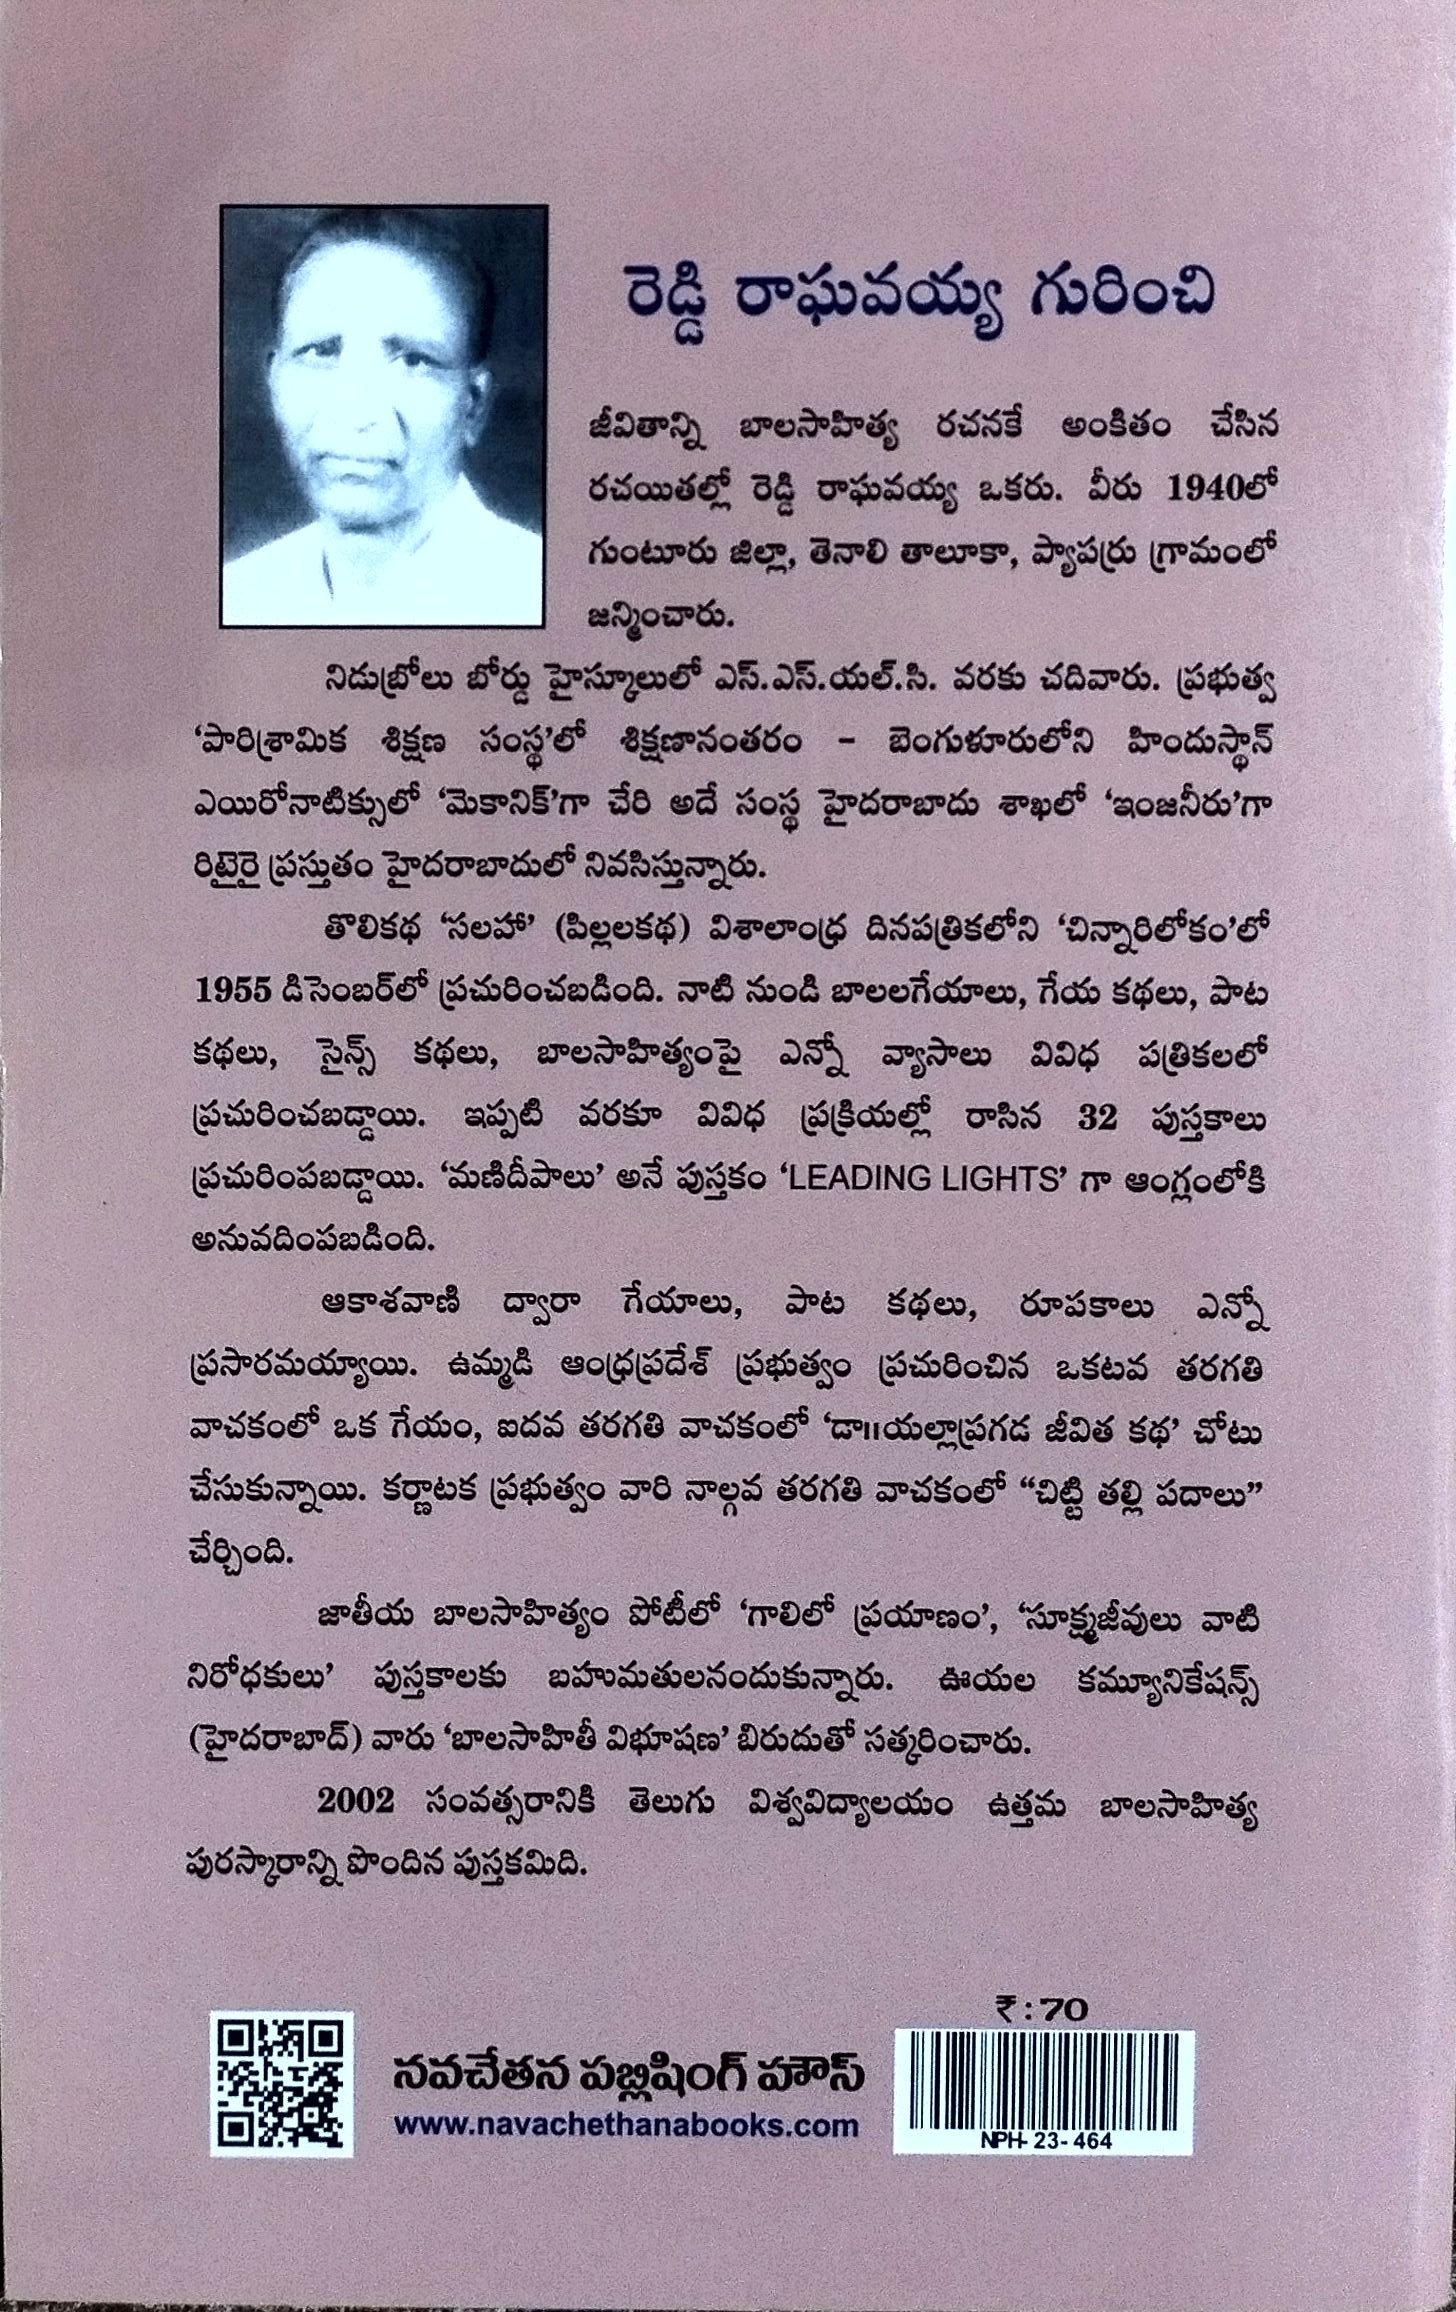 రెడ్డి రాఘవయ్య గురించి
జీవితాన్ని బాలసాహిత్య రచనకే అంకితం చేసిన
రచయితల్లో రెడ్డి రాఘవయ్య ఒకరు. వీరు 1940లో
గుంటూరు జిల్లా, తెనాలి తాలూకా, ప్యాపర్రు గ్రామంలో
జన్మించారు.
నిడుబ్రోలు బోర్డు హైస్కూలులో ఎస్.ఎస్.యల్.సి. వరకు చదివారు. ప్రభుత్వ
‘పారిశ్రామిక శిక్షణ సంస్థ’లో శిక్షణానంతరం - బెంగుళూరులోని హిందుస్థాన్
ఎయిరోనాటిక్సులో ‘మెకానిక్’గా చేరి అదే సంస్థ హైదరాబాదు శాఖలో ‘ఇంజనీరు’గా
రిటైరై ప్రస్తుతం హైదరాబాదులో నివసిస్తున్నారు.
తొలికథ ‘సలహా’ (పిల్లలకథ) విశాలాంధ్ర దినపత్రికలోని ‘చిన్నారిలోకం’లో
1955 డిసెంబర్‌లో ప్రచురించబడింది. నాటి నుండి బాలలగేయాలు, గేయ కథలు, పాట
కథలు, సైన్స్ కథలు, బాలసాహిత్యంపై ఎన్నో వ్యాసాలు వివిధ పత్రికలలో
ప్రచురించబడ్డాయి. ఇప్పటి వరకూ వివిధ ప్రక్రియల్లో రాసిన 32 పుస్తకాలు
ప్రచురింపబడ్డాయి. ‘మణిదీపాలు’ అనే పుస్తకం ‘LEADING LIGHTS’ గా ఆంగ్లంలోకి
అనువదింపబడింది.
ఆకాశవాణి ద్వారా గేయాలు, పాట కథలు, రూపకాలు ఎన్నో
ప్రసారమయ్యాయి. ఉమ్మడి ఆంధ్రప్రదేశ్ ప్రభుత్వం ప్రచురించిన ఒకటవ తరగతి
వాచకంలో ఒక గేయం, ఐదవ తరగతి వాచకంలో ‘డా॥యల్లాప్రగడ జీవిత కథ’ చోటు
చేసుకున్నాయి. కర్ణాటక ప్రభుత్వం వారి నాల్గవ తరగతి వాచకంలో “చిట్టి తల్లి పదాలు”
చేర్చింది.
జాతీయ బాలసాహిత్యం పోటీలో ‘గాలిలో ప్రయాణం’, ‘సూక్ష్మజీవులు వాటి
నిరోధకులు’ పుస్తకాలకు బహుమతులనందుకున్నారు. ఊయల కమ్యూనికేషన్స్
(హైదరాబాద్) వారు ‘బాలసాహితీ విభూషణ’ బిరుదుతో సత్కరించారు.
2002 సంవత్సరానికి తెలుగు విశ్వవిద్యాలయం ఉత్తమ బాలసాహిత్య
పురస్కారాన్ని పొందిన పుస్తకమిది.
₹:70
నవచేతన పబ్లిషింగ్ హౌస్
www.navachethanabooks.com
NPH- 23-464